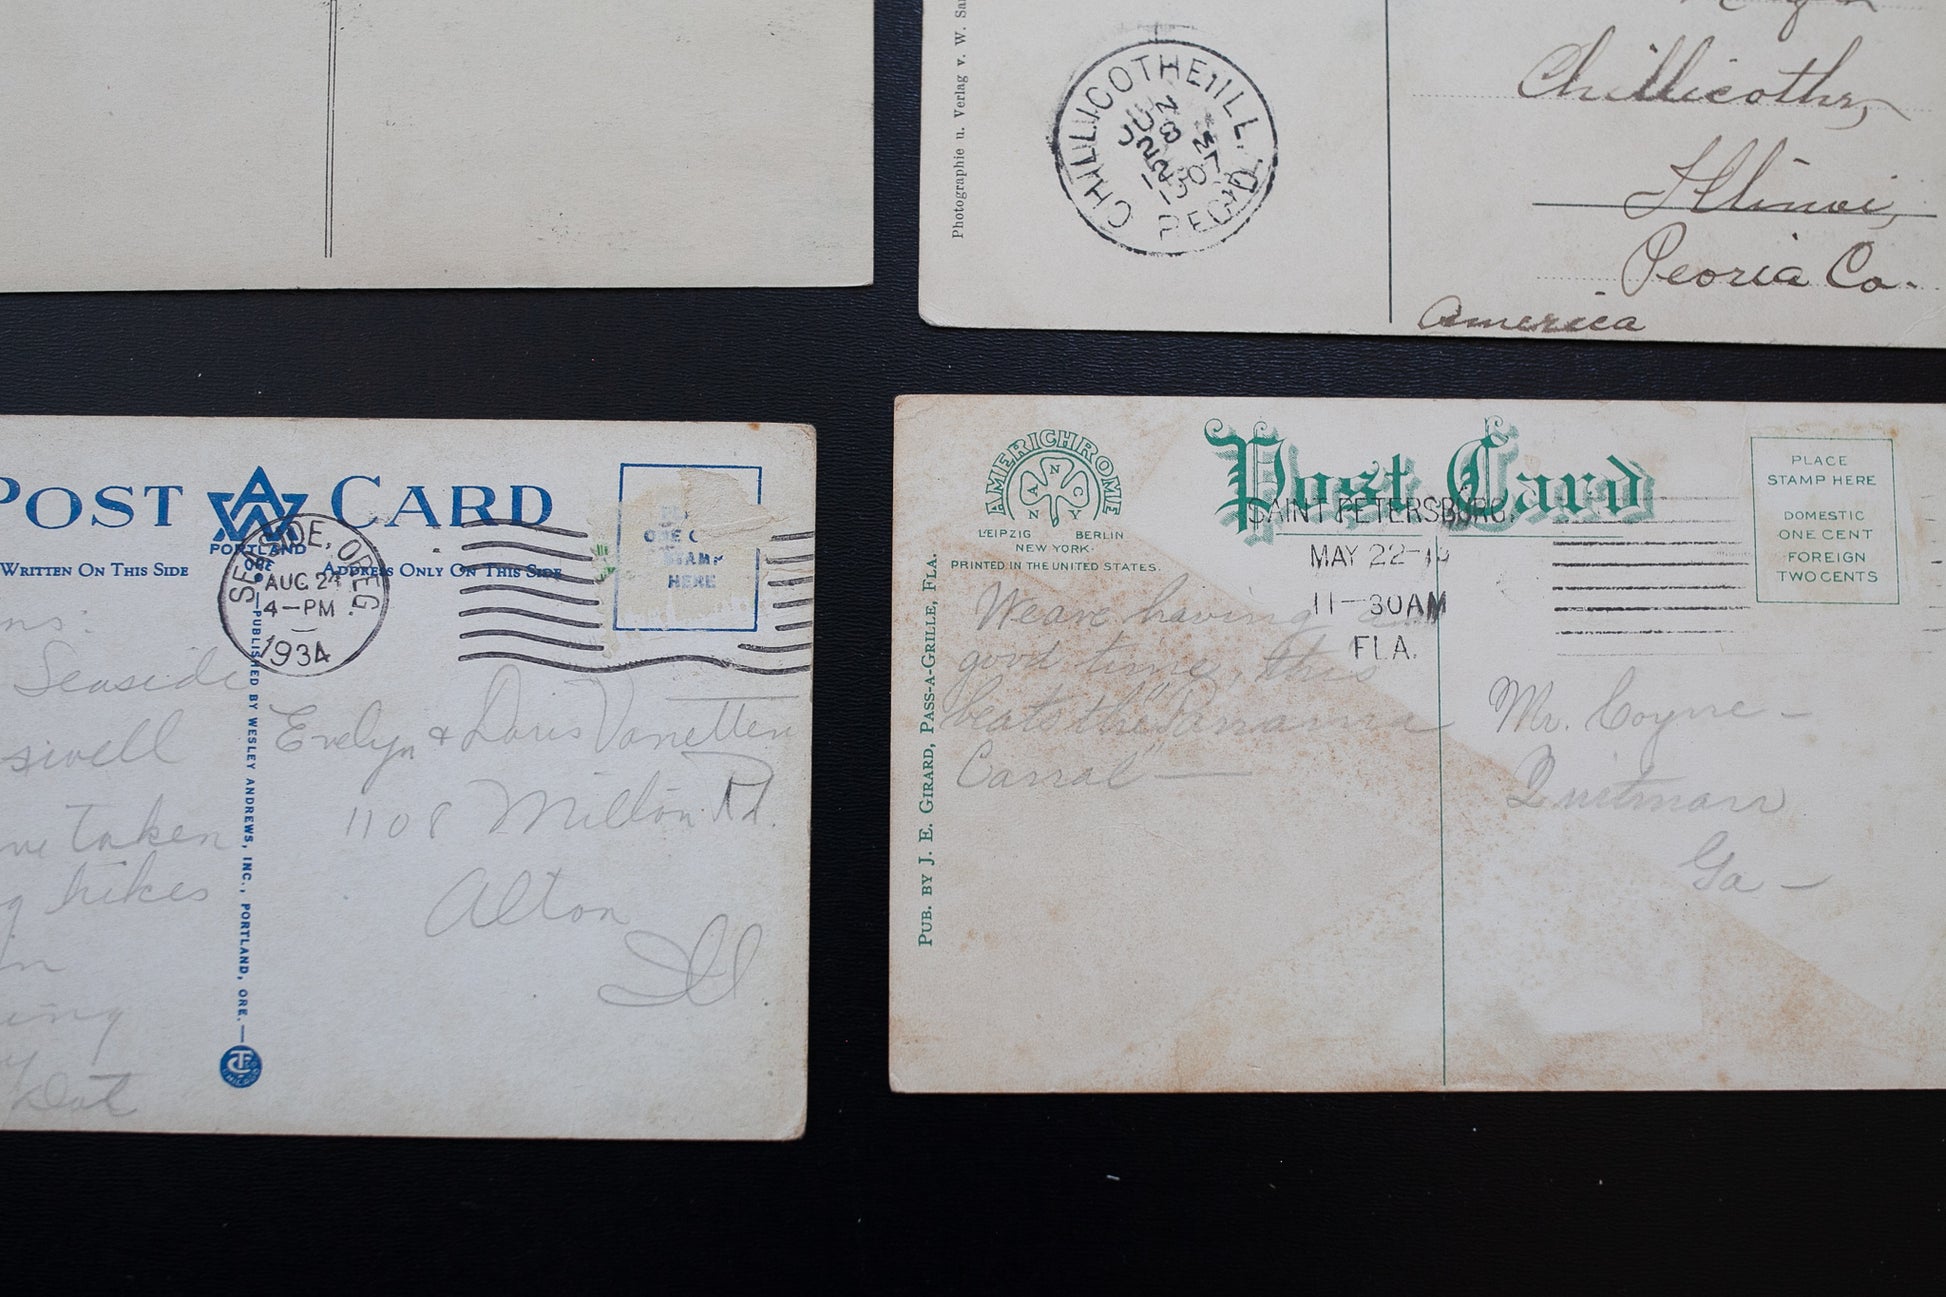 Photographie u. Verlag v. W. Sa
CHILLICOTHE, ILL.
JUN
8
12 M
1907
REC'D.
Chillicothe,
Illinoi,
Peoria Co.
America
POST CARD
PORTLAND
ORE
WRITTEN ON THIS SIDE
ADDRESS ONLY ON THIS SIDE
SEASIDE, OREG.
AUG 24
4-PM
1934
ONE C
STAMP
HERE
PUBLISHED BY WESLEY ANDREWS, INC., PORTLAND, ORE.
ns.
Seaside
swell
ve taken
g hikes
in
ing
y
Dot
Evelyn & Doris Vanetten
1108 Milton Rd.
Alton
Ill
AMERICHROME
A N C
N Y
LEIPZIG BERLIN
NEW YORK.
PRINTED IN THE UNITED STATES.
Post Card
SAINT PETERSBURG,
MAY 22-1
11-30AM
FLA.
PLACE
STAMP HERE
DOMESTIC
ONE CENT
FOREIGN
TWO CENTS
PUB. BY J. E. GIRARD, PASS-A-GRILLE, FLA.
We are having a
good time, this
beats the "Panama
Canal" —
Mr. Coyne -
Quitman
Ga -